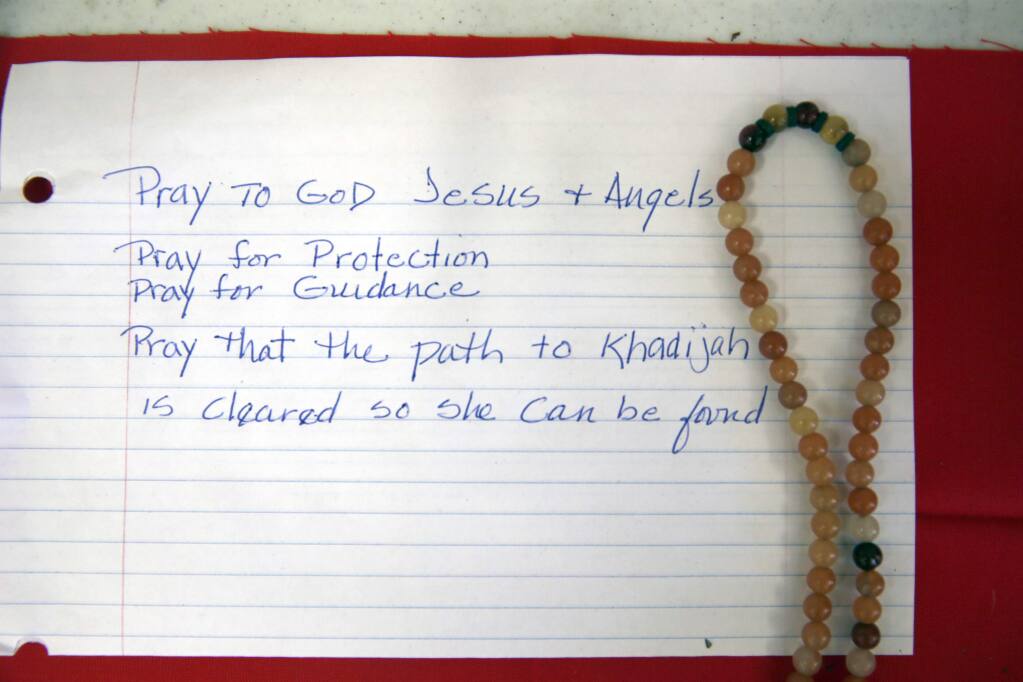 Pray To God Jesus + Angels
Pray for Protection
Pray for Guidance
Pray that the path to Khadijah
is cleared so she can be found